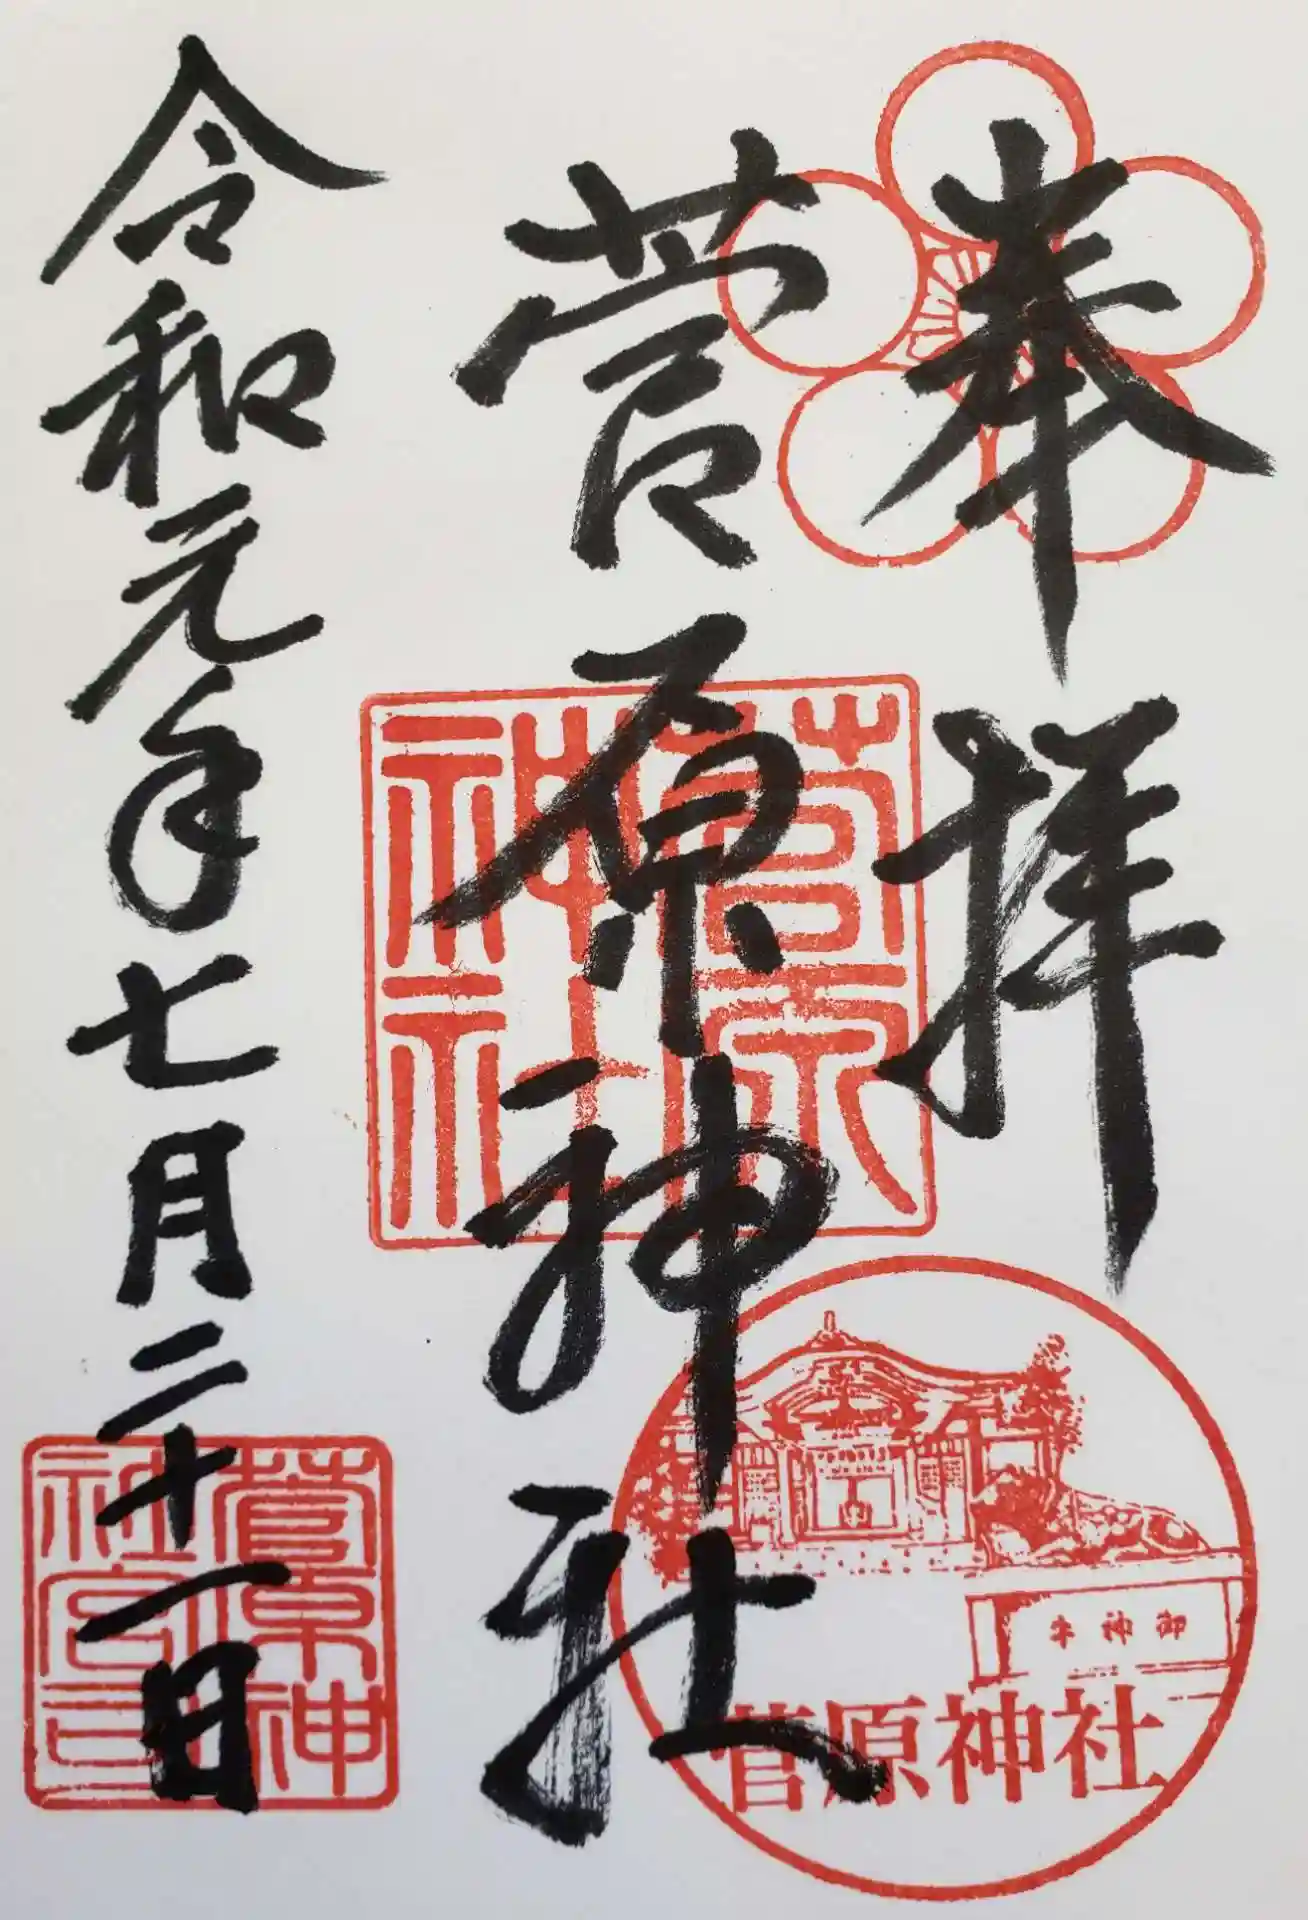 奉拝
菅原神社
令和元年七月二十一日
菅原神社
御神牛
菅原神社
菅原神社宮司印